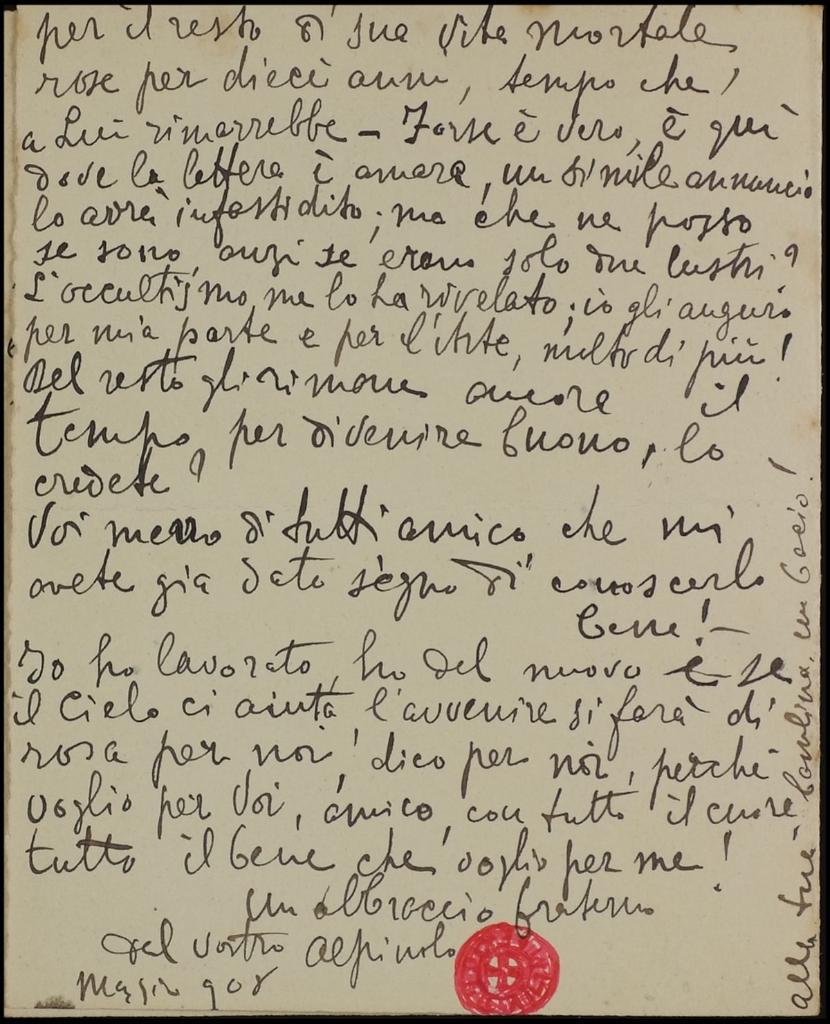 per il resto di sua vita mortale
rose per dieci anni, tempo che
a Lui rimarrebbe - Forse è vero, è qui
dove la lettera è amara, un simile annuncio
lo avrà infastidito; ma che ne posso
se sono, anzi se erano solo due lustri?
L'occultismo me lo ha rivelato; io gli auguro
per mia parte e per l'Arte, molto di più!
Del resto gli rimane ancora il
tempo per divenire buono, lo
credete?
Voi meno di tutti amico che mi
avete già dato segno di conoscerlo
bene! -
Io ho lavorato, ho del nuovo e se
il Cielo ci aiuta, l'avvenire si farà di
rosa per noi, dico per noi, perchè
voglio per Voi, amico, con tutto il cuore,
tutto il bene che voglio per me!
Un abbraccio fraterno
del vostro Alpinolo
908
alla tua bambina, un bacio!